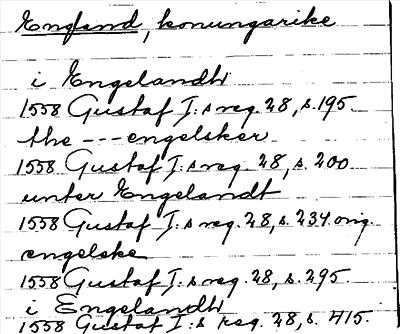 England, konungarike
i Engelandh
1558 Gustaf I:s reg. 28, s. 195.
the --- engelsker
1558 Gustaf I:s reg. 28, s. 200
unter Engelandt
1558 Gustaf I:s reg. 28, s. 234 orig.
engelske
1558 Gustaf I:s reg. 28, s. 295
i Engelandh
1558 Gustaf I:s reg. 28, s. 415.